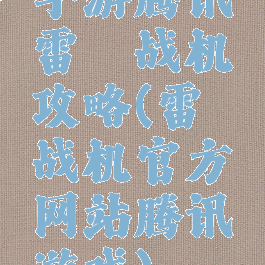 手游腾讯
雷 战机
攻略(雷
战机官方
网站腾讯
游戏)